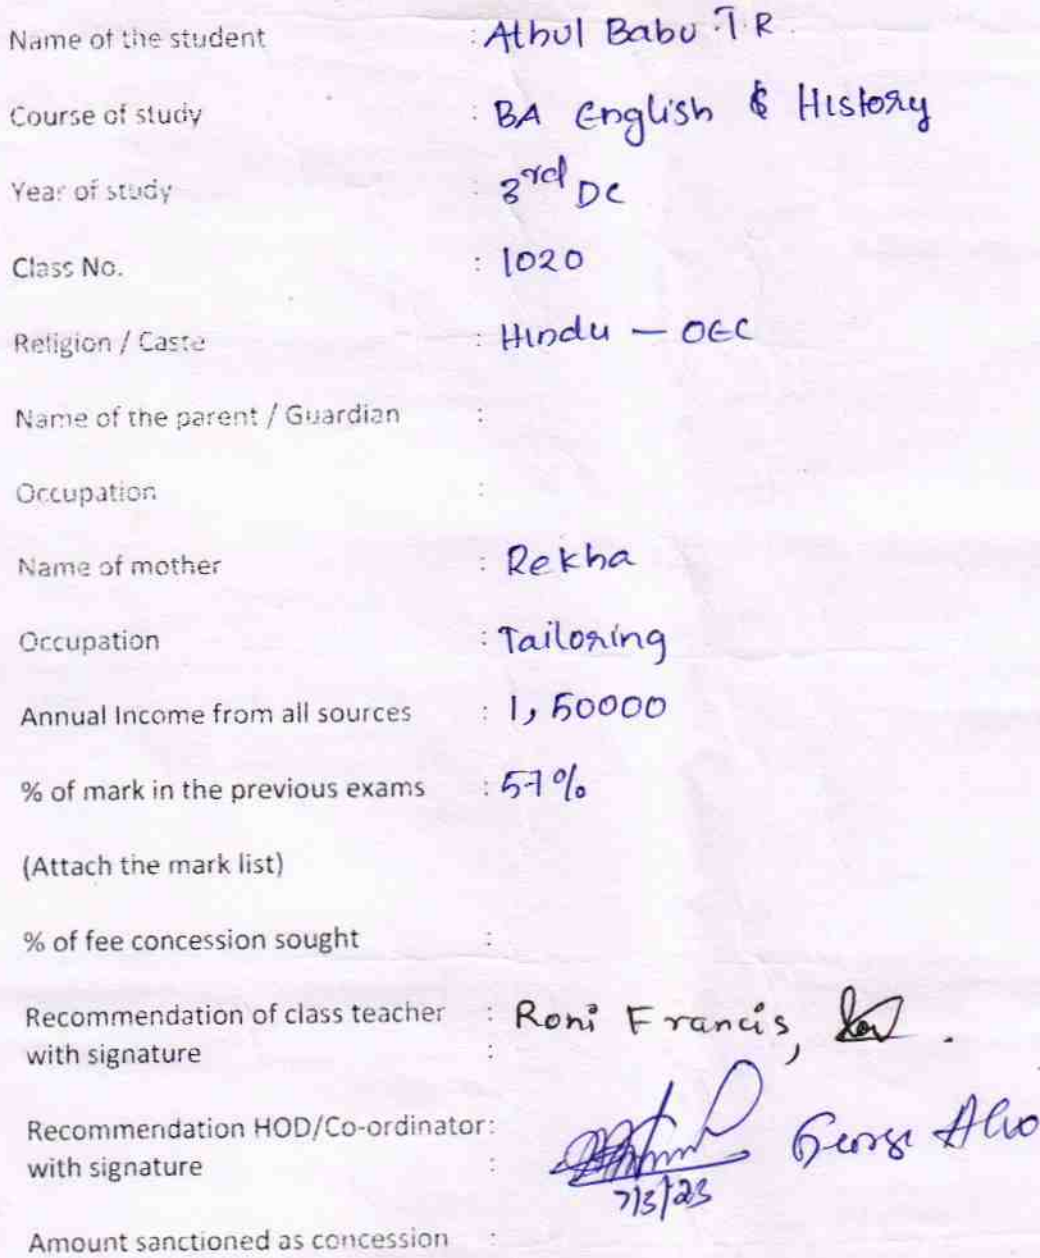 Name of the student : Athul Babu T.R.
Course of study : BA English & History
Year of study : 3rd DC
Class No. : 1020
Religion / Caste : Hindu — OEC
Name of the parent / Guardian :
Occupation :
Name of mother : Rekha
Occupation : Tailoring
Annual Income from all sources : 1,50000
% of mark in the previous exams : 57%
(Attach the mark list)
% of fee concession sought :
Recommendation of class teacher : Roni Francis,
with signature :
Recommendation HOD/Co-ordinator: George
with signature :
7/3/23
Amount sanctioned as concession :